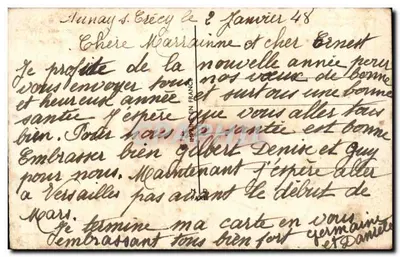 Aunay s. Crécy le 2 Janvier 48
Chère Marrainne et cher Ernest
Je profite de la nouvelle année pour
vous envoyer tous nos vœux de bonne
et heureux année et surtous une bonne
santée J'espère que vous aller tous
bien. Pour nous la santée est bonne
Embrasser bien Gilbert Denise et Guy
pour nous. Maintenant J'espère aller
a Versailles pas avant le début de
Mars.
Je termine ma carte en vous
embrassant tous bien fort Germaine
et Daniele